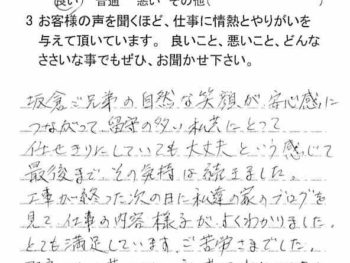 良い 普通 悪い その他( )
3 お客様の声を聞くほど、仕事に情熱とやりがいを
与えて頂いています。 良いこと、悪いこと、どんな
ささいな事でもぜひ、お聞かせ下さい。
坂倉ご兄弟の自然な笑顔が安心感に
つながって留守の多い私共にとって
任せきりにしていても大丈夫という感じで
最後まで、その気持は続きました。
工事が終った次の日に私達の家のブログを
見て、仕事の内容様子が、よくわかりました。
とても満足しています。ご苦労さまでした。